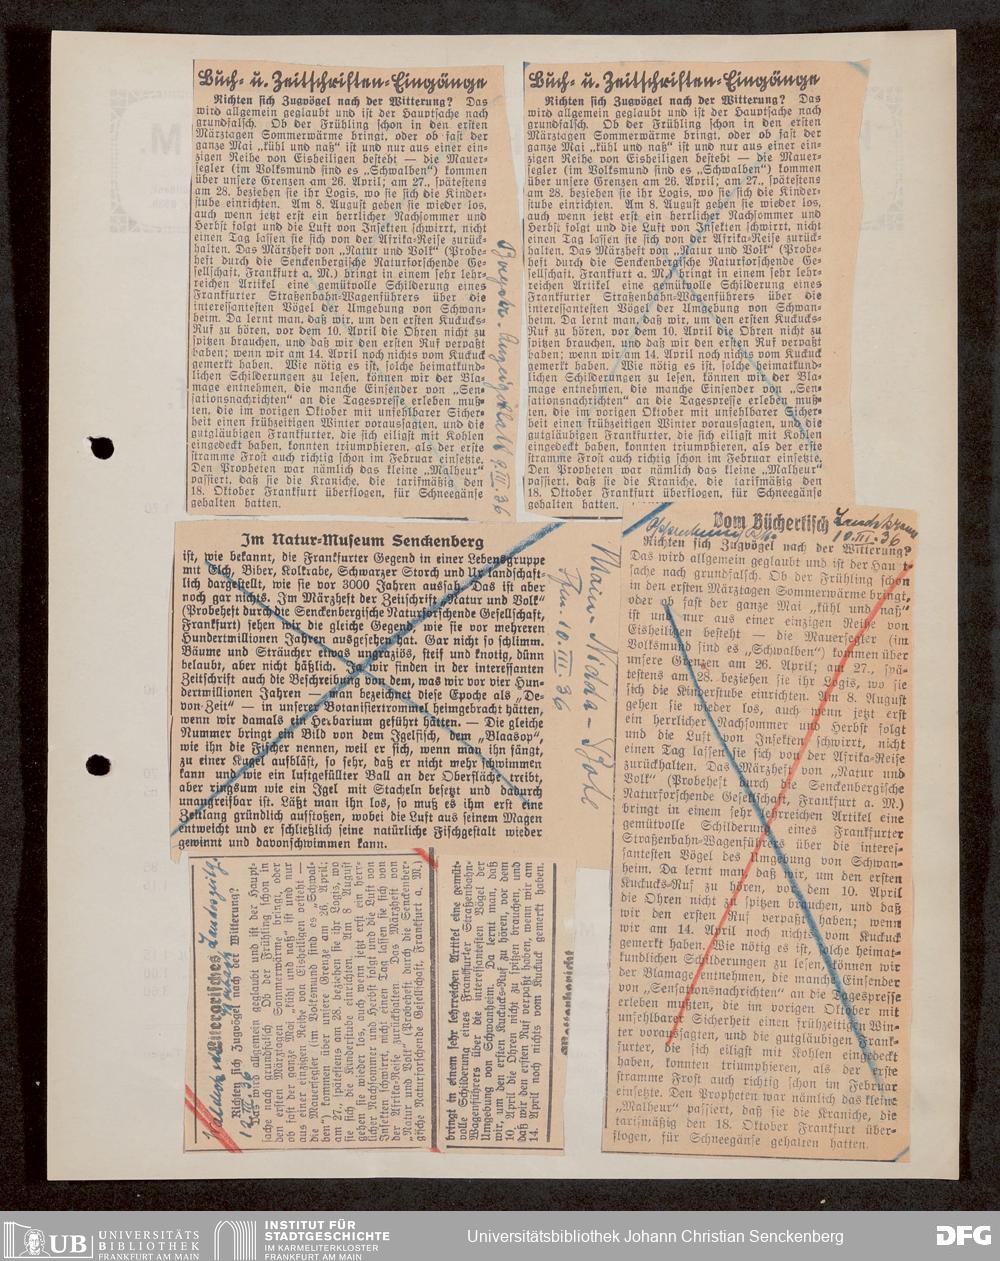 Buch- u. Zeitschriften-Eingänge
Richten sich Zugvögel nach der Witterung? Das
wird allgemein geglaubt und ist der Hauptsache nach
grundfalsch. Ob der Frühling schon in den ersten
Märztagen Sommerwärme bringt, oder ob fast der
ganze Mai „kühl und naß“ ist und nur aus einer ein-
zigen Reihe von Eisheiligen besteht — die Mauer-
segler (im Volksmund sind es „Schwalben“) kommen
über unsere Grenzen am 26. April; am 27., spätestens
am 28. beziehen sie ihr Logis, wo sie sich die Kinder-
stube einrichten. Am 8. August gehen sie wieder los,
auch wenn jetzt erst ein herrlicher Nachsommer und
Herbst folgt und die Luft von Insekten schwirrt, nicht
einen Tag lassen sie sich von der Afrika-Reise zurück-
halten. Das Märzheft von „Natur und Volk“ (Probe-
heft durch die Senckenbergische Naturforschende Ge-
sellschaft, Frankfurt a. M.) bringt in einem sehr lehr-
reichen Artikel eine gemütvolle Schilderung eines
Frankfurter Straßenbahn-Wagenführers über die
interessantesten Vögel der Umgebung von Schwan-
heim. Da lernt man, daß wir, um den ersten Kuckucks-
Ruf zu hören, vor dem 10. April die Ohren nicht zu
spitzen brauchen, und daß wir den ersten Ruf verpaßt
haben; wenn wir am 14. April noch nichts vom Kuckuck
gemerkt haben. Wie nötig es ist, solche heimatkund-
lichen Schilderungen zu lesen, können wir der Bla-
mage entnehmen, die manche Einsender von „Sen-
sationsnachrichten“ an die Tagespresse erleben muß-
ten, die im vorigen Oktober mit unfehlbarer Sicher-
heit einen frühzeitigen Winter voraussagten, und die
gutgläubigen Frankfurter, die sich eiligst mit Kohlen
eingedeckt haben, konnten triumphieren, als der erste
stramme Frost auch richtig schon im Februar einsetzte.
Den Propheten war nämlich das kleine „Malheur“
passiert, daß sie die Kraniche, die tarifmäßig den
18. Oktober Frankfurt überflogen, für Schneegänse
gehalten hatten.
9. III. 36
Buch- u. Zeitschriften-Eingänge
Richten sich Zugvögel nach der Witterung? Das
wird allgemein geglaubt und ist der Hauptsache nach
grundfalsch. Ob der Frühling schon in den ersten
Märztagen Sommerwärme bringt, oder ob fast der
ganze Mai „kühl und naß“ ist und nur aus einer ein-
zigen Reihe von Eisheiligen besteht — die Mauer-
segler (im Volksmund sind es „Schwalben“) kommen
über unsere Grenzen am 26. April; am 27., spätestens
am 28. beziehen sie ihr Logis, wo sie sich die Kinder-
stube einrichten. Am 8. August gehen sie wieder los,
auch wenn jetzt erst ein herrlicher Nachsommer und
Herbst folgt und die Luft von Insekten schwirrt, nicht
einen Tag lassen sie sich von der Afrika-Reise zurück-
halten. Das Märzheft von „Natur und Volk“ (Probe-
heft durch die Senckenbergische Naturforschende Ge-
sellschaft, Frankfurt a. M.) bringt in einem sehr lehr-
reichen Artikel eine gemütvolle Schilderung eines
Frankfurter Straßenbahn-Wagenführers über die
interessantesten Vögel der Umgebung von Schwan-
heim. Da lernt man, daß wir, um den ersten Kuckucks-
Ruf zu hören, vor dem 10. April die Ohren nicht zu
spitzen brauchen, und daß wir den ersten Ruf verpaßt
haben; wenn wir am 14. April noch nichts vom Kuckuck
gemerkt haben. Wie nötig es ist, solche heimatkund-
lichen Schilderungen zu lesen, können wir der Bla-
mage entnehmen, die manche Einsender von „Sen-
sationsnachrichten“ an die Tagespresse erleben muß-
ten, die im vorigen Oktober mit unfehlbarer Sicher-
heit einen frühzeitigen Winter voraussagten, und die
gutgläubigen Frankfurter, die sich eiligst mit Kohlen
eingedeckt haben, konnten triumphieren, als der erste
stramme Frost auch richtig schon im Februar einsetzte.
Den Propheten war nämlich das kleine „Malheur“
passiert, daß sie die Kraniche, die tarifmäßig den
18. Oktober Frankfurt überflogen, für Schneegänse
gehalten hatten.
Im Natur-Museum Senckenberg
ist, wie bekannt, die Frankfurter Gegend in einer Lebensgruppe
mit Elch, Biber, Kolkrabe, Schwarzer Storch und Ur landschaft-
lich dargestellt, wie sie vor 3000 Jahren aussah. Das ist aber
noch gar nichts. Im Märzheft der Zeitschrift „Natur und Volk“
(Probeheft durch die Senckenbergische Naturforschende Gesellschaft,
Frankfurt) sehen wir die gleiche Gegend, wie sie vor mehreren
Hundertmillionen Jahren ausgesehen hat. Gar nicht so schlimm.
Bäume und Sträucher etwas ungraziös, steif und knotig, dünn
belaubt, aber nicht häßlich. Ja wir finden in der interessanten
Zeitschrift auch die Beschreibung von dem, was wir vor vier Hun-
dertmillionen Jahren — man bezeichnet diese Epoche als „De-
von-Zeit“ — in unserer Botanisiertrommel heimgebracht hätten,
wenn wir damals ein Herbarium geführt hätten. — Die gleiche
Nummer bringt ein Bild von dem Igelfisch, dem „Blaasop“,
wie ihn die Fischer nennen, weil er sich, wenn man ihn fängt,
zu einer Kugel aufbläst, so sehr, daß er nicht mehr schwimmen
kann und wie ein luftgefüllter Ball an der Oberfläche treibt,
aber ringsum wie ein Igel mit Stacheln besetzt und dadurch
unangreifbar ist. Läßt man ihn los, so muß es ihm erst eine
Zeitlang gründlich aufstoßen, wobei die Luft aus seinem Magen
entweicht und er schließlich seine natürliche Fischgestalt wieder
gewinnt und davonschwimmen kann.
Main-Nidda-Bote
10. III. 36
Vom Büchertisch
10. III. 36
Richten sich Zugvögel nach der Witterung?
Das wird allgemein geglaubt und ist der Haupt-
sache nach grundfalsch. Ob der Frühling schon
in den ersten Märztagen Sommerwärme bringt,
oder ob fast der ganze Mai „kühl und naß“
ist und nur aus einer einzigen Reihe von
Eisheiligen besteht — die Mauersegler (im
Volksmund sind es „Schwalben“) kommen über
unsere Grenzen am 26. April; am 27., spä-
testens am 28. beziehen sie ihr Logis, wo sie
sich die Kinderstube einrichten. Am 8. August
gehen sie wieder los, auch wenn jetzt erst
ein herrlicher Nachsommer und Herbst folgt
und die Luft von Insekten schwirrt, nicht
einen Tag lassen sie sich von der Afrika-Reise
zurückhalten. Das Märzheft von „Natur und
Volk“ (Probeheft durch die Senckenbergische
Naturforschende Gesellschaft, Frankfurt a. M.)
bringt in einem sehr lehrreichen Artikel eine
gemütvolle Schilderung eines Frankfurter
Straßenbahn-Wagenführers über die interes-
santesten Vögel des Umgebung von Schwan-
heim. Da lernt man, daß wir, um den ersten
Kuckucks-Ruf zu hören, vor dem 10. April
die Ohren nicht zu spitzen brauchen, und daß
wir den ersten Ruf verpaßt haben; wenn
wir am 14. April noch nichts vom Kuckuck
gemerkt haben. Wie nötig es ist, solche heimat-
kundlichen Schilderungen zu lesen, können wir
der Blamage entnehmen, die manche Einsender
von „Sensationsnachrichten“ an die Tagespresse
erleben mußten, die im vorigen Oktober mit
unfehlbarer Sicherheit einen frühzeitigen Win-
ter voraussagten, und die gutgläubigen Frank-
furter, die sich eiligst mit Kohlen eingedeckt
haben, konnten triumphieren, als der erste
stramme Frost auch richtig schon im Februar
einsetzte. Den Propheten war nämlich das kleine
„Malheur“ passiert, daß sie die Kraniche, die
tarifmäßig den 18. Oktober Frankfurt über-
flogen, für Schneegänse gehalten hatten.
12. III. 36
Literarisches
Richten sich Zugvögel nach der Witterung?
Das wird allgemein geglaubt und ist der Haupt-
sache nach grundfalsch. Ob der Frühling schon in
den ersten Märztagen Sommerwärme bringt, oder
ob fast der ganze Mai „kühl und naß“ ist und nur
aus einer einzigen Reihe von Eisheiligen besteht —
die Mauersegler (im Volksmund sind es „Schwal-
ben“) kommen über unsere Grenze am 26. April;
am 27., spätestens am 28. beziehen sie ihr Logis, wo
sie sich die Kinderstube einrichten. Am 8. August
gehen sie wieder los, auch wenn jetzt erst ein herr-
licher Nachsommer und Herbst folgt und die Luft von
Insekten schwirrt, nicht einen Tag lassen sie sich von
der Afrika-Reise zurückhalten. Das Märzheft von
„Natur und Volk“ (Probeheft durch die Senckenber-
gische Naturforschende Gesellschaft, Frankfurt a. M.)
bringt in einem sehr lehrreichen Artikel eine gemüt-
volle Schilderung eines Frankfurter Straßenbahn-
Wagenführers über die interessantesten Vögel der
Umgebung von Schwanheim. Da lernt man, daß
wir, um den ersten Kuckucks-Ruf zu hören, vor dem
10. April die Ohren nicht zu spitzen brauchen, und
daß wir den ersten Ruf verpaßt haben, wenn wir am
14. April noch nichts vom Kuckuck gemerkt haben.
UB
UNIVERSITÄTS
BIBLIOTHEK
FRANKFURT AM MAIN
INSTITUT FÜR
STADTGESCHICHTE
IM KARMELITERKLOSTER
FRANKFURT AM MAIN
Universitätsbibliothek Johann Christian Senckenberg
DFG